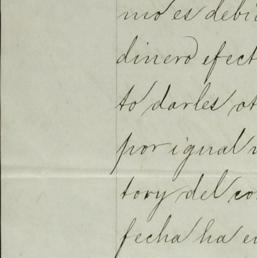 mo es debi
dinero efect
to darles ot
por igual
tory del co
fecha ha e